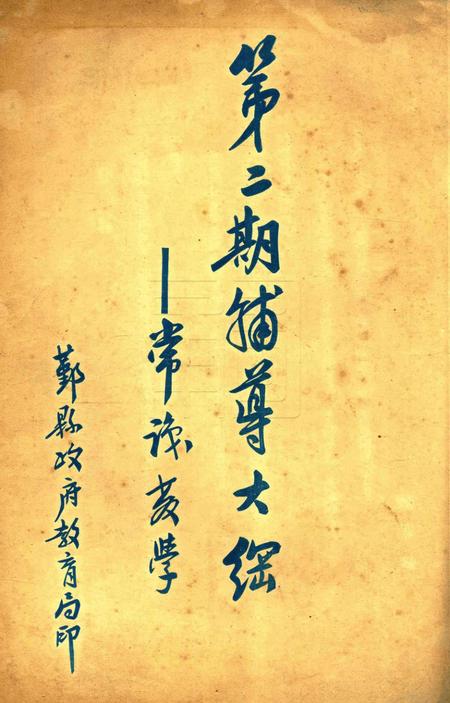 第二期辅導大綱
—常識教學
鄞縣政府教育局印